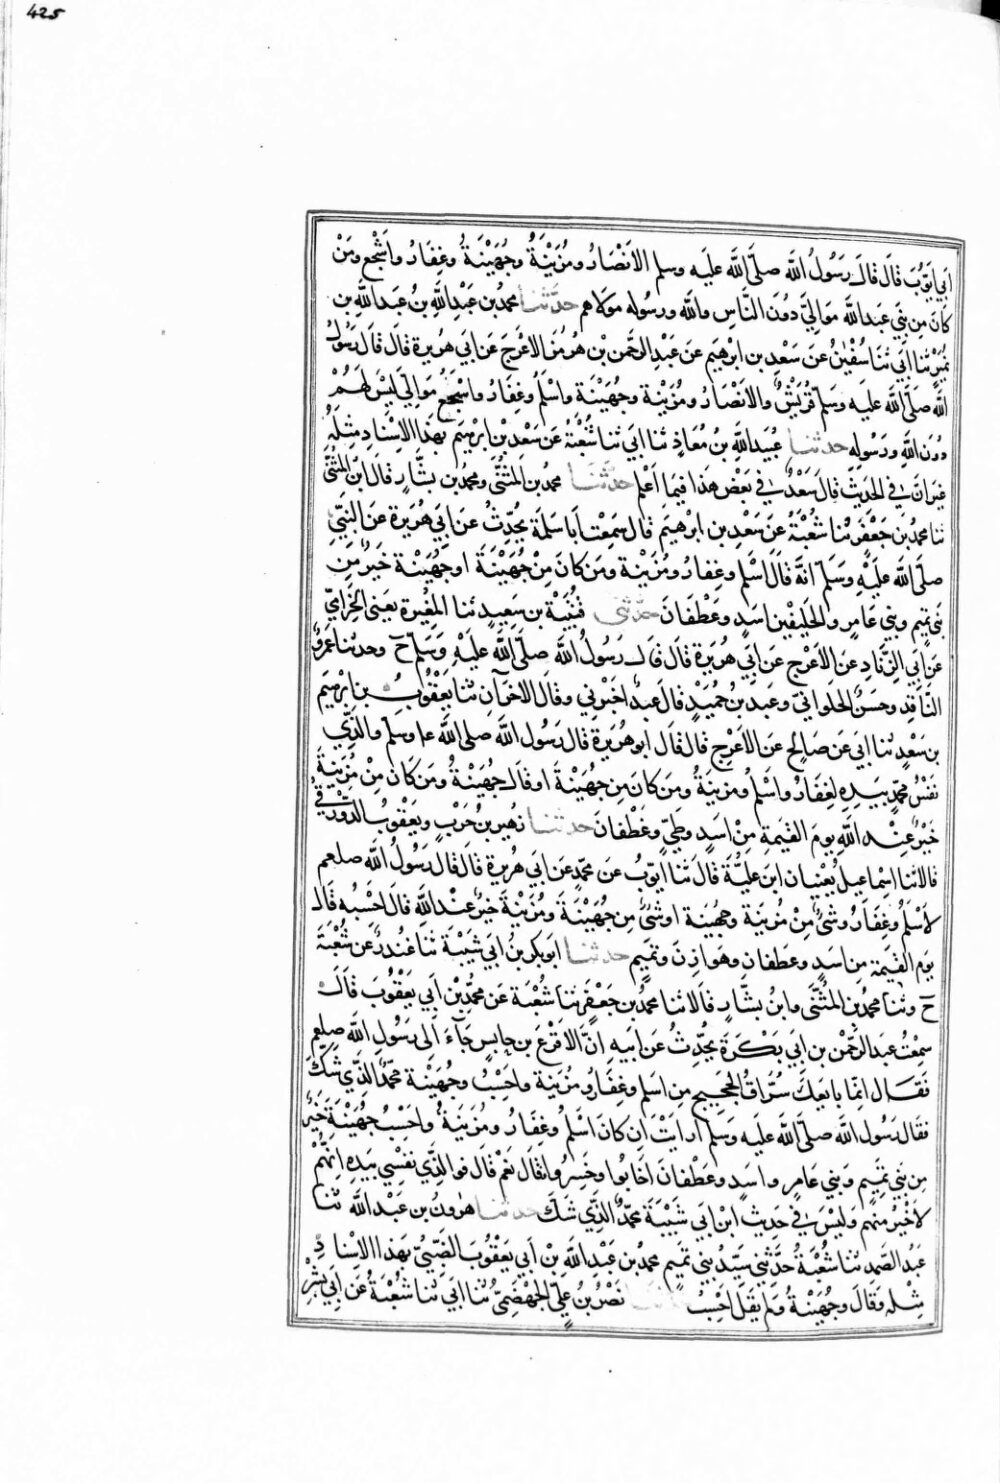 425
ابي ايوب قال قال رسول الله صلى الله عليه وسلم الانصار ومزينة وجهينة وغفار واشجع ومن
كان من بني عبد الله موالي دون الناس والله ورسوله مولاهم حدثنا محمد بن عبد الله بن عبد الله بن
نمير ثنا ابي ثنا سفين عن سعد بن ابرهيم عن عبد الرحمن بن هرمز الاعرج عن ابي هريرة قال قال رسول
الله صلى الله عليه وسلم قريش والانصار ومزينة وجهينة واسلم وغفار واشجع موالي ليس لهم
دون الله ورسوله حدثنا عبيد الله بن معاذ ثنا ابي ثنا شعبة عن سعد بن ابرهيم بهذا الاسناد مثله
غير ان في الحديث قال سعد في بعض هذا فيما اعلم حدثنا محمد بن المثنى ومحمد بن بشار قال ابن المثنى
ثنا محمد بن جعفر ثنا شعبة عن سعد بن ابرهيم قال سمعت ابا سلمة يحدث عن ابي هريرة عن النبي
صلى الله عليه وسلم انه قال اسلم وغفار ومزينة ومن كان من جهينة او جهينة خير من
بني تميم وبني عامر والحليفين اسد وغطفان حدثني قتيبة بن سعيد ثنا المغيرة يعني الحزامي
عن ابي الزناد عن الاعرج عن ابي هريرة قال قال رسول الله صلى الله عليه وسلم ح وحدثنا عمرو
الناقد وحسن الحلواني وعبد بن حميد قال عبد اخبرني وقال الاخران ثنا يعقوب بن ابرهيم
بن سعد ثنا ابي عن صالح عن الاعرج قال قال ابو هريرة قال رسول الله صلى الله علم وسلم والذي
نفس محمد بيده لغفار واسلم ومزينة ومن كان من جهينة او قال جهينة ومن كان من مزينة
خير عند الله يوم القيمة من اسد وطي وغطفان حدثنا زهير بن حرب ويعقوب الدورقي
قالا ثنا اسماعيل يعنيان ابن علية قال ثنا ايوب عن محمد عن ابي هريرة قال قال رسول الله صلعم
لاسلم وغفار وشئ من مزينة وجهينة او شئ من جهينة ومزينة خير عند الله قال احسبه قال
يوم القيمة من اسد وغطفان وهوازن وتميم حدثنا ابو بكر بن ابي شيبة ثنا غندر عن شعبة
ح وثنا محمد بن المثنى وابن بشار قالا ثنا محمد بن جعفر ثنا شعبة عن محمد بن ابي يعقوب قال
سمعت عبد الرحمن بن ابي بكرة يحدث عن ابيه ان الاقرع بن حابس جاء الى رسول الله صلعم
فقال انما بايعك سراق الحجيج من اسلم وغفار ومزينة واحسب وجهينة محمد الذي شك
فقال رسول الله صلى الله عليه وسلم ارايت ان كان اسلم وغفار ومزينة واحسب جهينة خير
من بني تميم وبني عامر واسد وغطفان اخابوا وخسروا فقال نعم قال فوالذي نفسي بيده انهم
لاخير منهم وليس في حديث ابن ابي شيبة محمد الذي شك حدثنا هرون بن عبد الله ثنا
عبد الصمد ثنا شعبة حدثني سيد بني تميم محمد بن عبد الله بن ابي يعقوب الضبي بهذا الاسناد
مثله وقال وجهينة ولم يقل احسب حدثنا نصر بن علي الجهضمي ثنا ابي ثنا شعبة عن ابي بشر